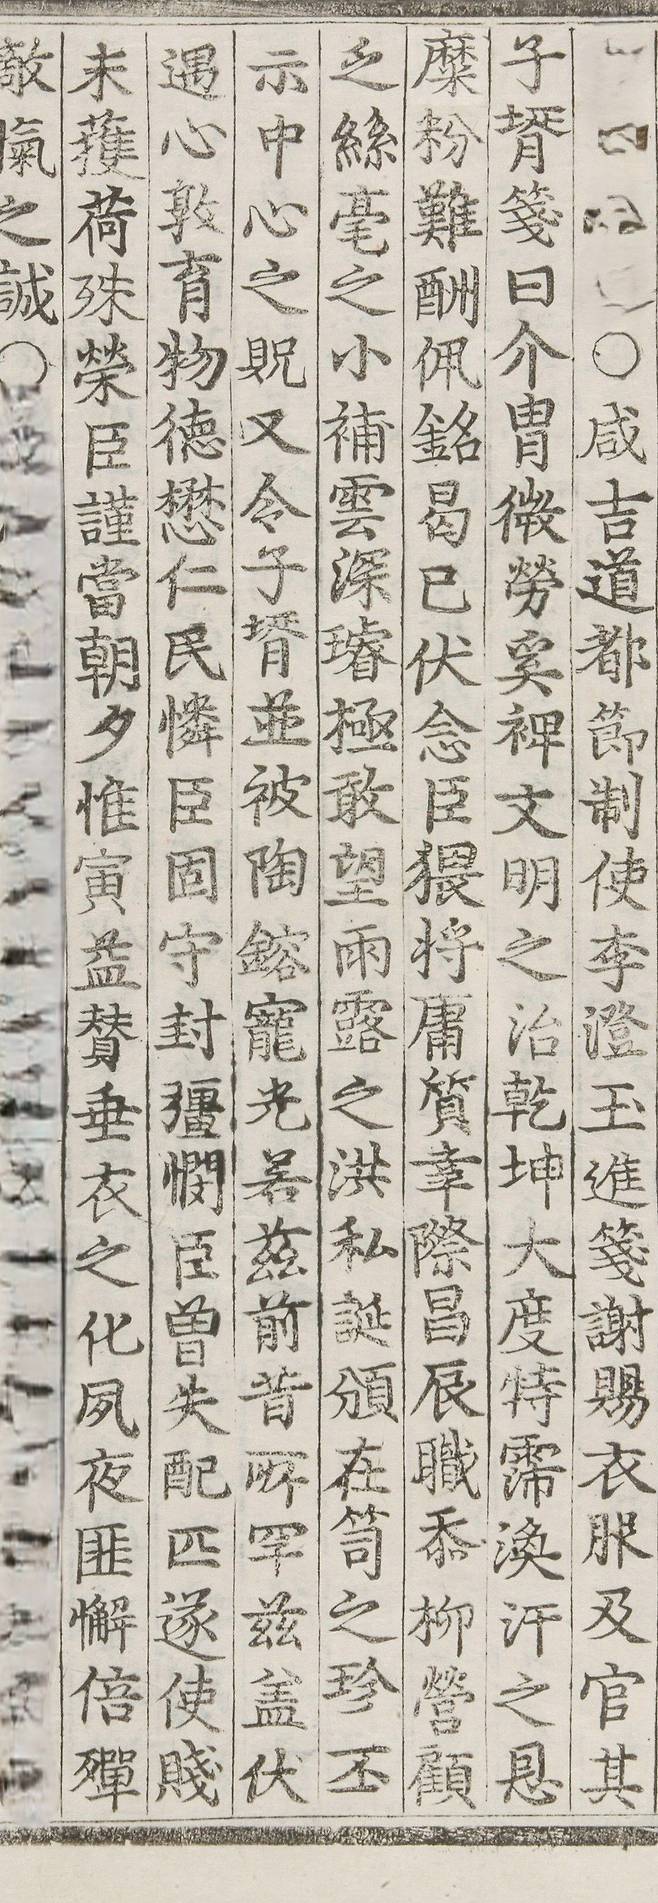 ○咸吉道都節制使李澄玉進箋謝賜衣服及官其
子壻箋曰介冑微勞奚裨文明之治乾坤大度特霈渙汗之恩
糜粉難酬佩銘曷已伏念臣猥將庸質幸際昌辰職忝柳營顧
乏絲毫之小補雲深璿極敢望雨露之洪私誕頒在笥之珍丕
示中心之貺又令子壻並被陶鎔寵光若玆前昔所罕玆盖伏
遇心敦育物德懋仁民憐臣固守封疆憫臣曾失配匹遂使賤
末獲荷殊榮臣謹當朝夕惟寅益贊垂衣之化夙夜匪懈倍殫
敵愾之誠○